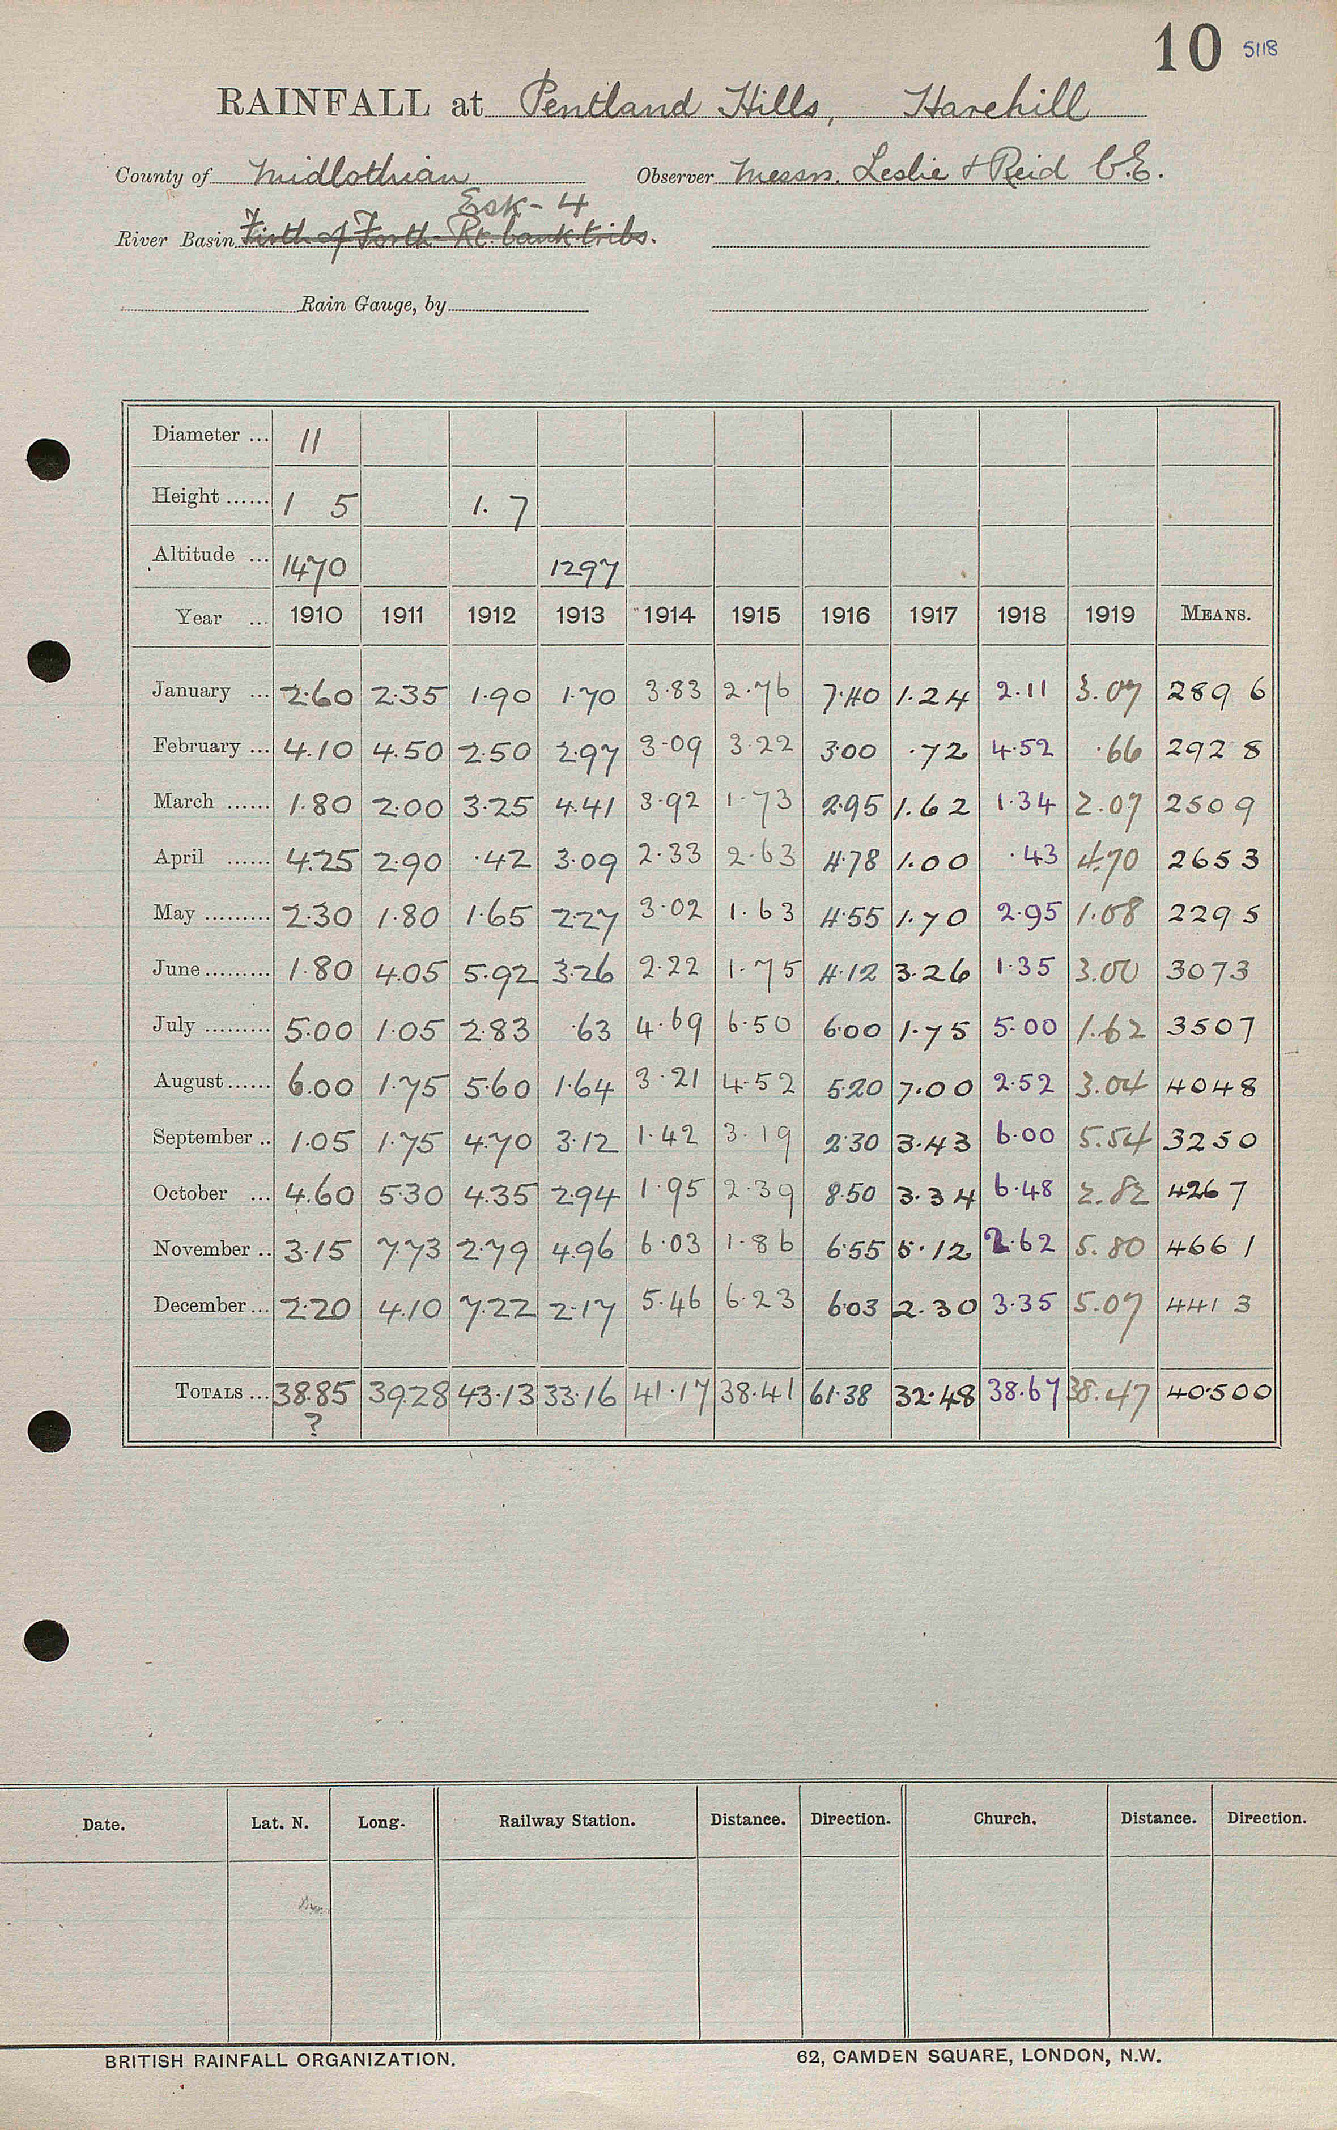 10 5118
RAINFALL at Pentland Hills, Harehill
County of Midlothian Observer Messrs. Leslie & Reid C.E.
Esk - 4
River Basin Firth of Forth - Rt. bank tribs.
Rain Gauge, by
Diameter ... 11
Height ...... 1 5 1. 7
Altitude ... 1470 1297
Year ... 1910 1911 1912 1913 1914 1915 1916 1917 1918 1919 MEANS.
January ... 2.60 2.35 1.90 1.70 3.83 2.76 7.40 1.24 2.11 3.07 289 6
February ... 4.10 4.50 2.50 2.97 3.09 3.22 3.00 .72 4.52 .66 292 8
March ...... 1.80 2.00 3.25 4.41 3.92 1.73 2.95 1.62 1.34 2.07 250 9
April ...... 4.25 2.90 .42 3.09 2.33 2.63 4.78 1.00 .43 4.70 265 3
May ......... 2.30 1.80 1.65 2.27 3.02 1.63 4.55 1.70 2.95 1.08 229 5
June ......... 1.80 4.05 5.92 3.26 2.22 1.75 4.12 3.26 1.35 3.00 307 3
July ......... 5.00 1.05 2.83 .63 4.69 6.50 6.00 1.75 5.00 1.62 350 7
August ...... 6.00 1.75 5.60 1.64 3.21 4.52 5.20 7.00 2.52 3.04 404 8
September .. 1.05 1.75 4.70 3.12 1.42 3.19 2.30 3.43 6.00 5.54 325 0
October ... 4.60 5.30 4.35 2.94 1.95 2.39 8.50 3.34 6.48 2.82 426 7
November .. 3.15 7.73 2.79 4.96 6.03 1.86 6.55 5.12 2.62 5.80 466 1
December ... 2.20 4.10 7.22 2.17 5.46 6.23 6.03 2.30 3.35 5.07 441 3
TOTALS ... 38.85 39.28 43.13 33.16 41.17 38.41 61.38 32.48 38.67 38.47 40.500
?
Date. Lat. N. Long. Railway Station. Distance. Direction. Church. Distance. Direction.
BRITISH RAINFALL ORGANIZATION. 62, CAMDEN SQUARE, LONDON, N.W.